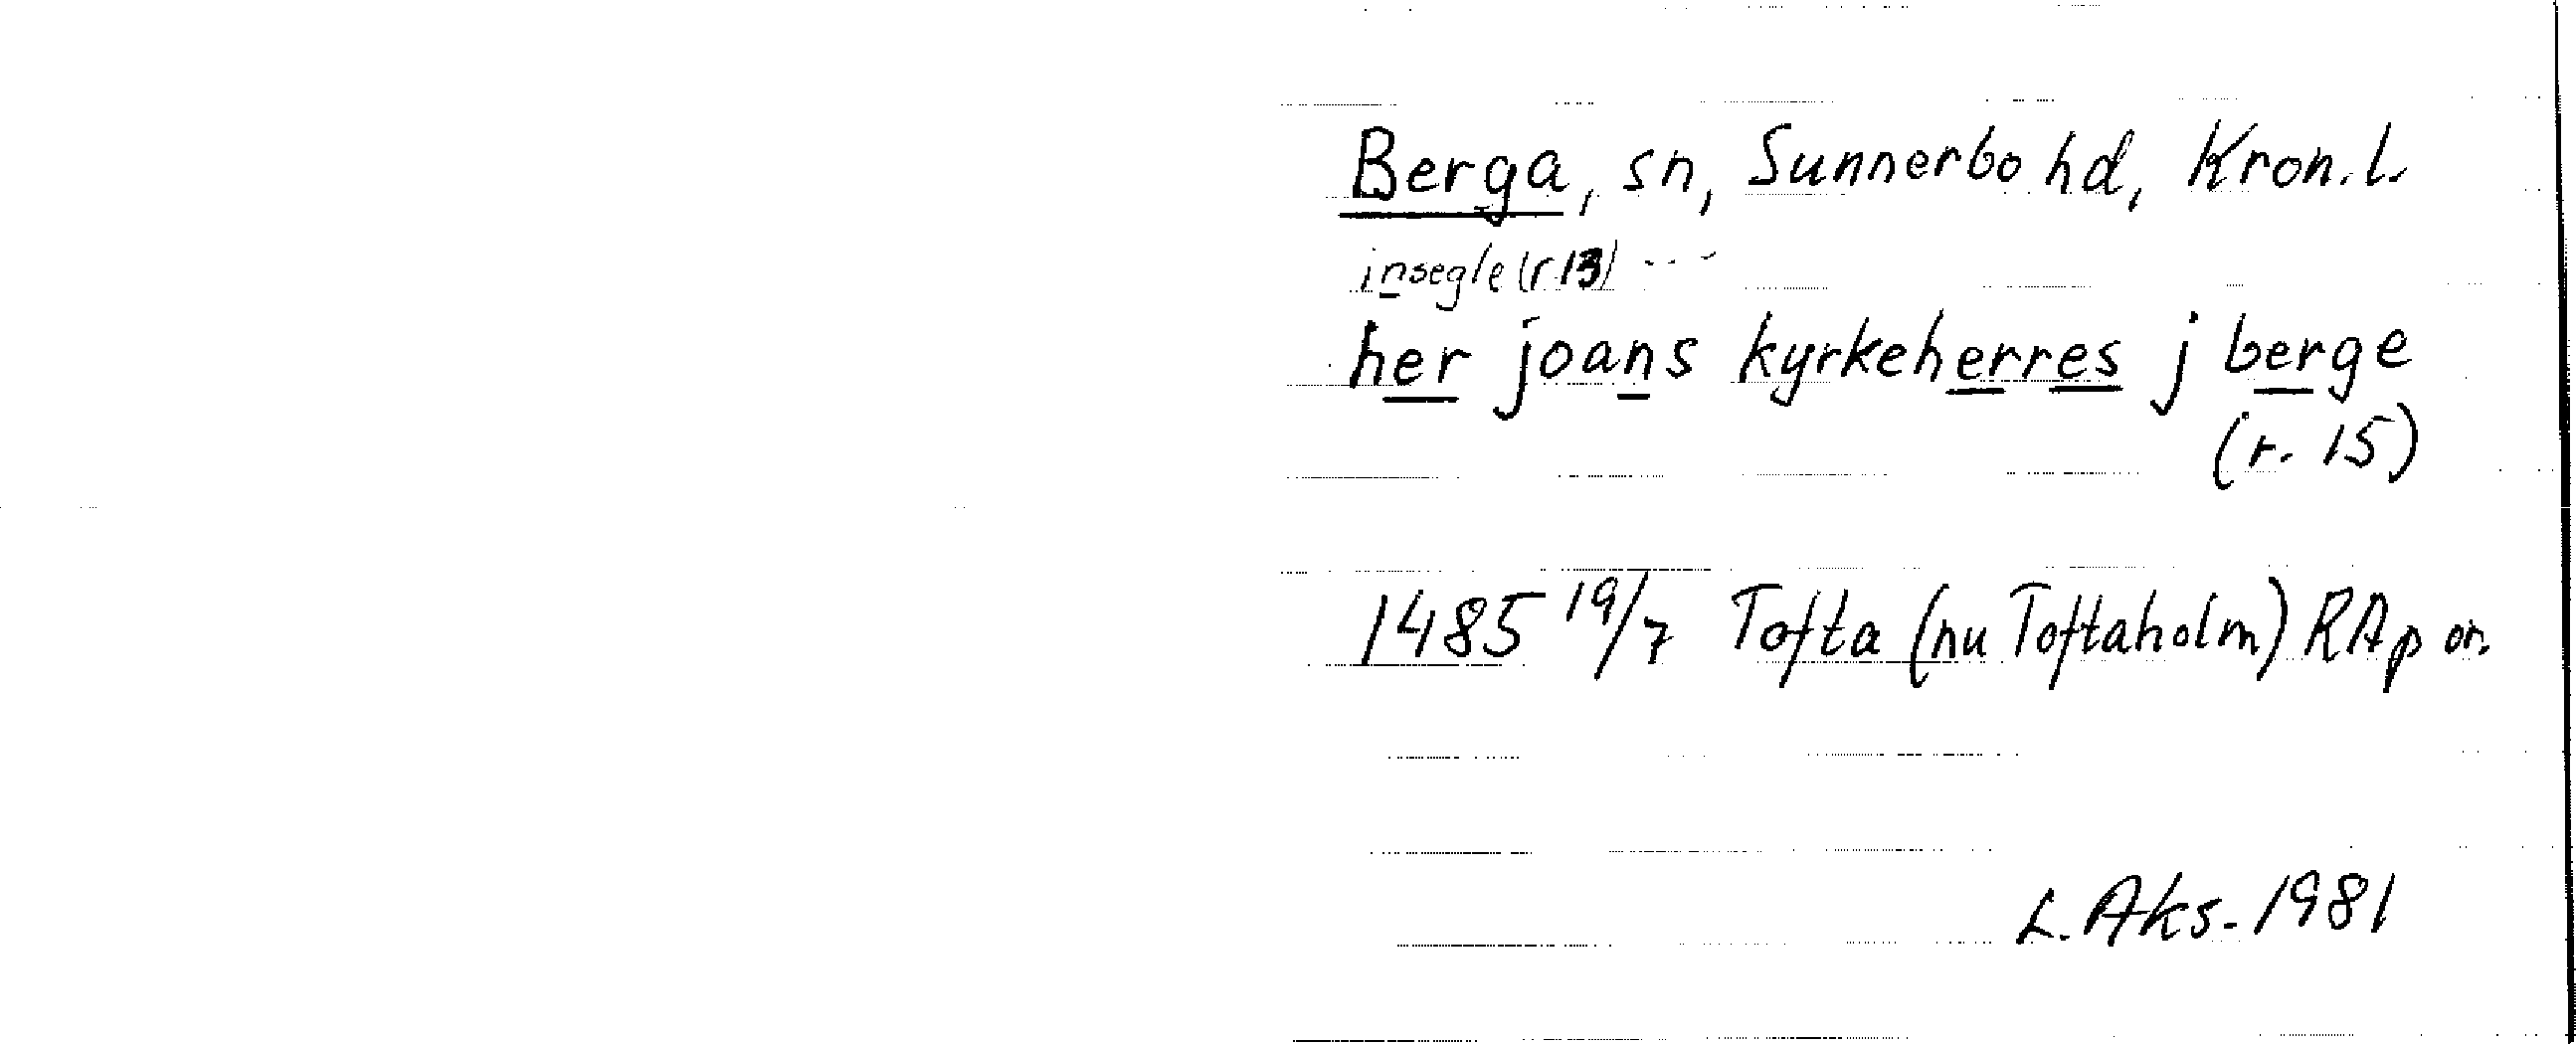 Berga, sn, Sunnerbo hd, Kron. l.
insegle (r 13) ---
her joans kyrkeherres j berge
(r. 15)
1485 19/7 Tofta (nu Toftaholm) RAp or.
L. Aks. 1981